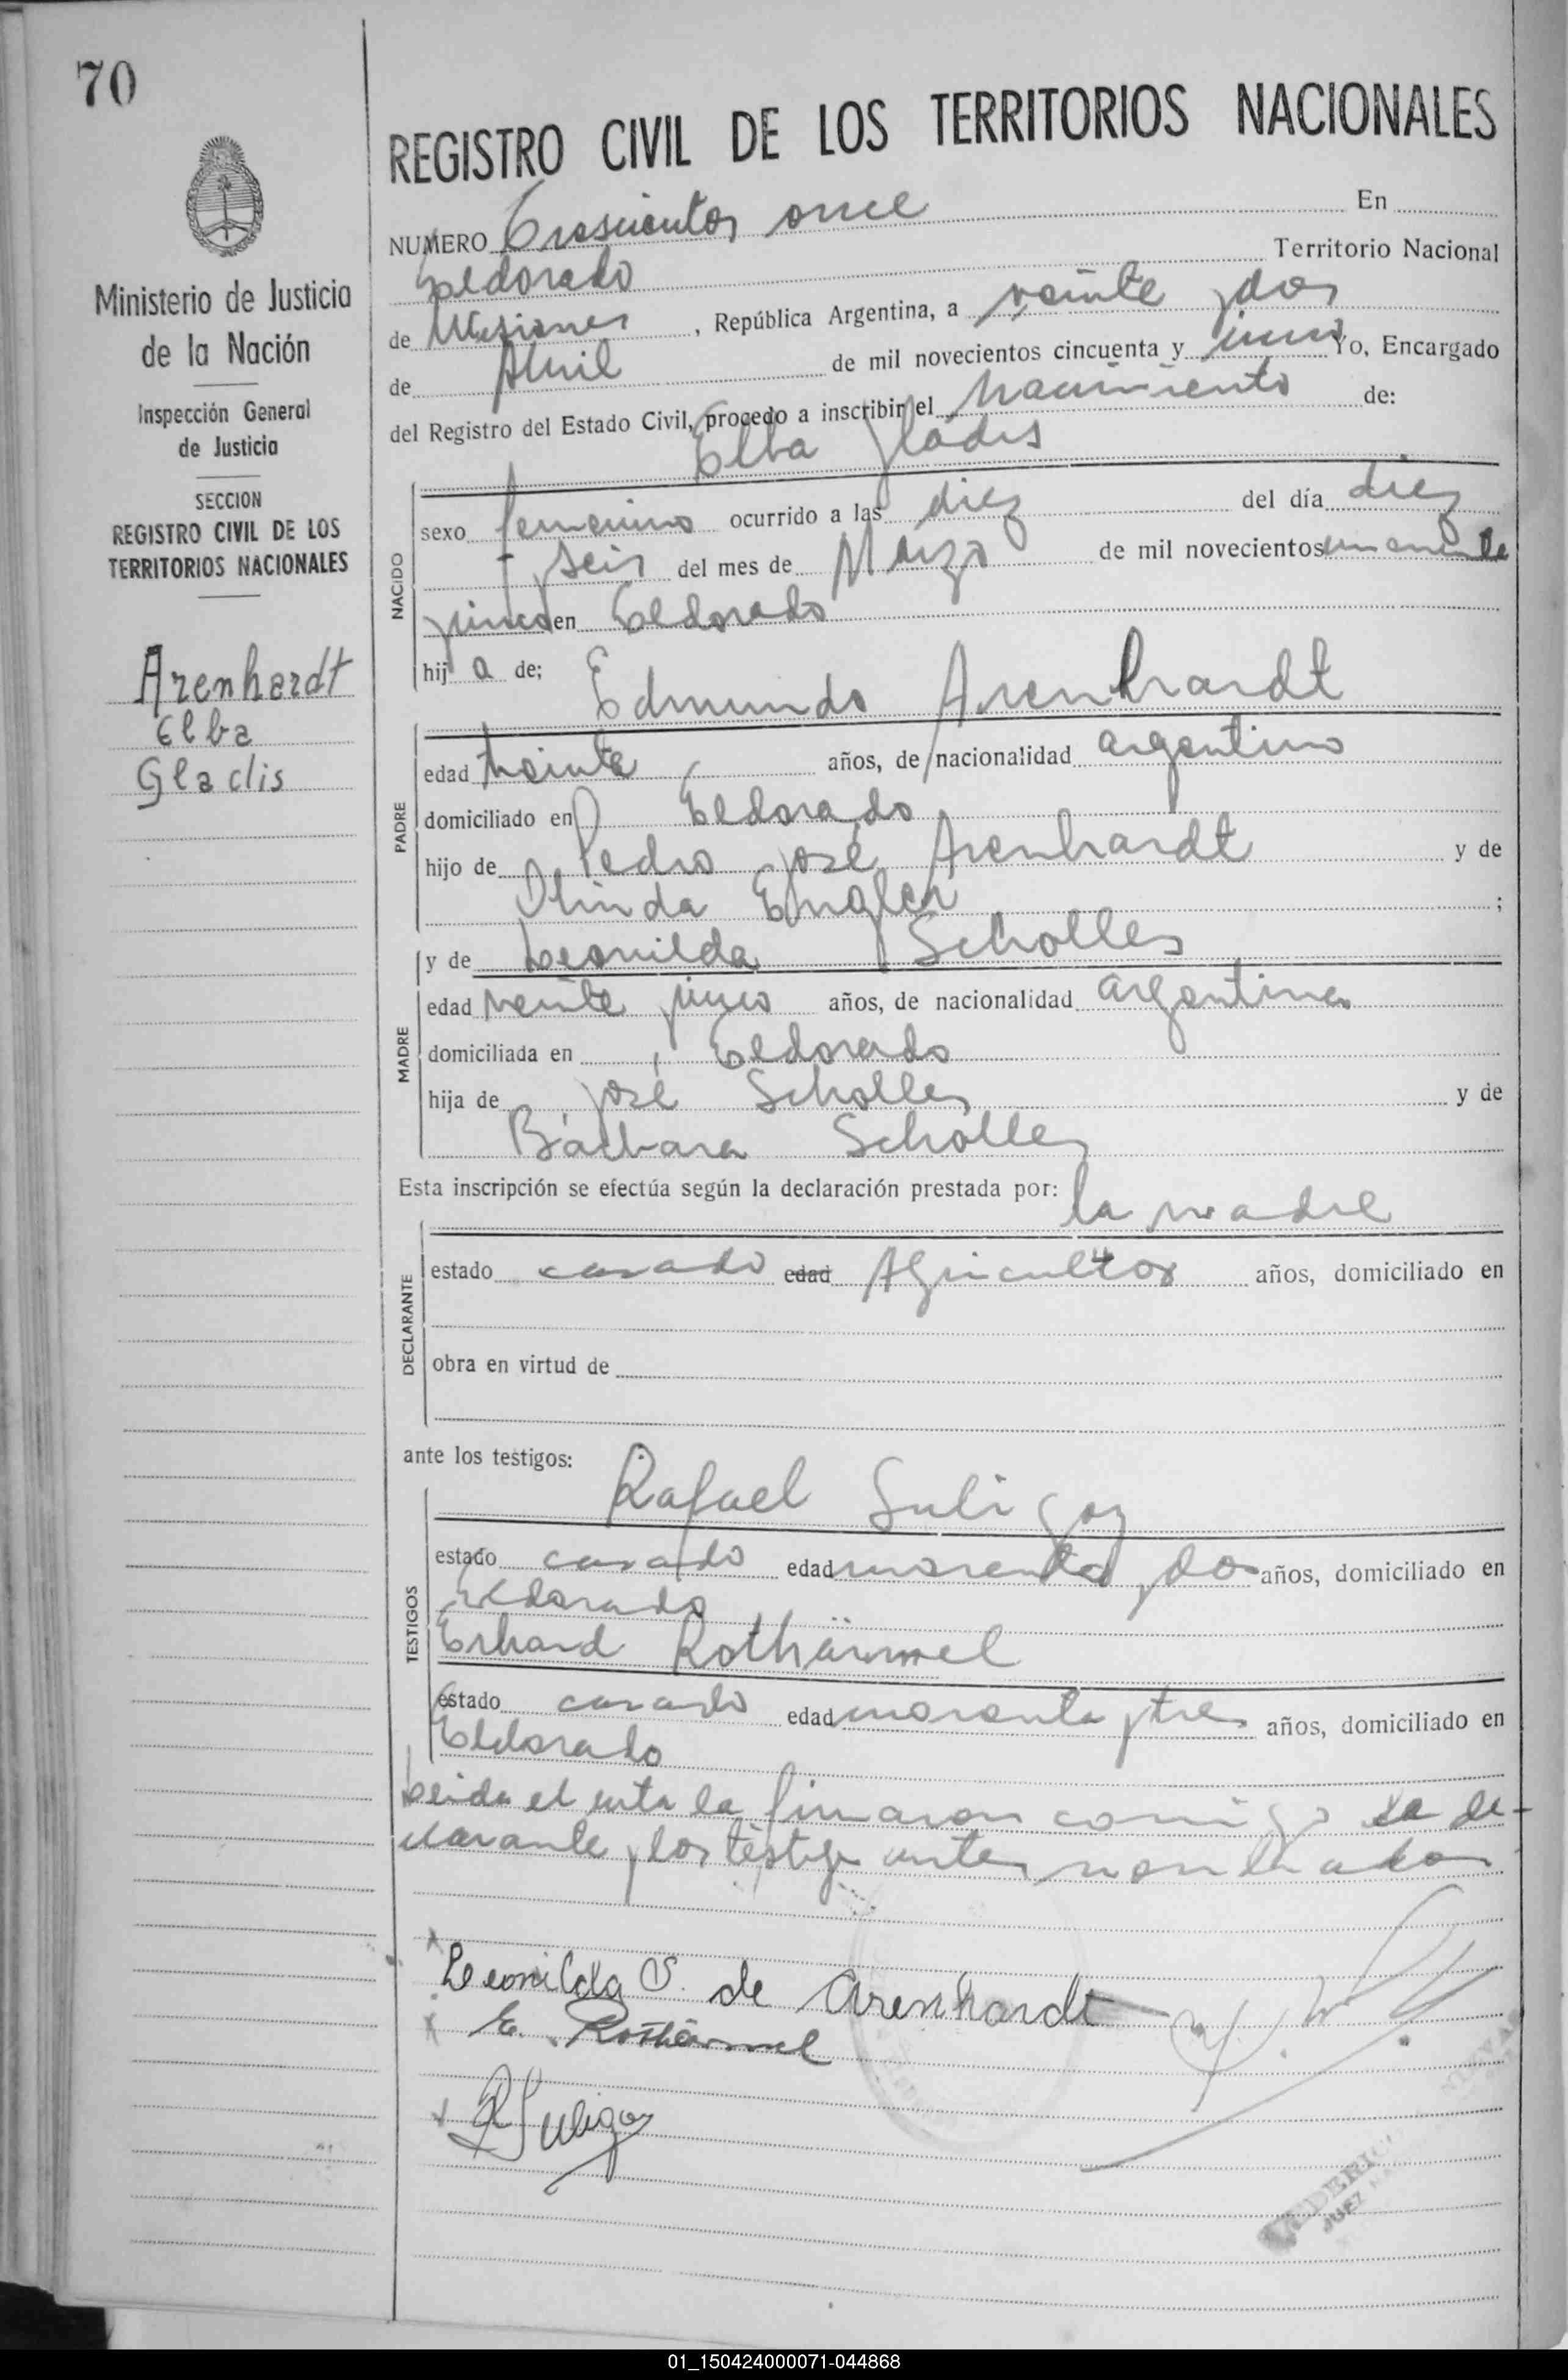 70
REGISTRO CIVIL DE LOS TERRITORIOS NACIONALES
Ministerio de Justicia
de la Nación
Inspección General
de Justicia
SECCION
REGISTRO CIVIL DE LOS
TERRITORIOS NACIONALES
Arenhardt
Elba
Gladis
NUMERO Trescientos once En
Eldorado Territorio Nacional
de Misiones, República Argentina, a veinte y dos
de Abril de mil novecientos cincuenta y Yo, Encargado
del Registro del Estado Civil, procedo a inscribir el nacimiento de:
Elba Gladis
NACIDO
sexo femenino ocurrido a las diez del día diez
y seis del mes de Marzo de mil novecientos
en Eldorado
hij a de;
Edmundo Arenhardt
PADRE
edad treinta años, de nacionalidad argentino
domiciliado en Eldorado
hijo de Pedro José Arenhardt y de
Olinda Engler ;
y de Leonilda Scholles
MADRE
edad veinte y años, de nacionalidad argentina
domiciliada en Eldorado
hija de José Scholles y de
Bárbara Scholles
Esta inscripción se efectúa según la declaración prestada por:
la madre
DECLARANTE
estado casado edad Agricultor años, domiciliado en
obra en virtud de
ante los testigos:
Rafael Suligoy
TESTIGOS
estado casado edad cuarenta y dos años, domiciliado en
Eldorado
Erhard Rothärmel
estado casado edad cuarenta y tres años, domiciliado en
Eldorado
Leida el acta la firmaron conmigo la de-
clarante y los testigos antes nombrados
Leonilda S. de Arenhardt
E. Rothärmel
R Suligoy
JUEZ
01_150424000071-044868